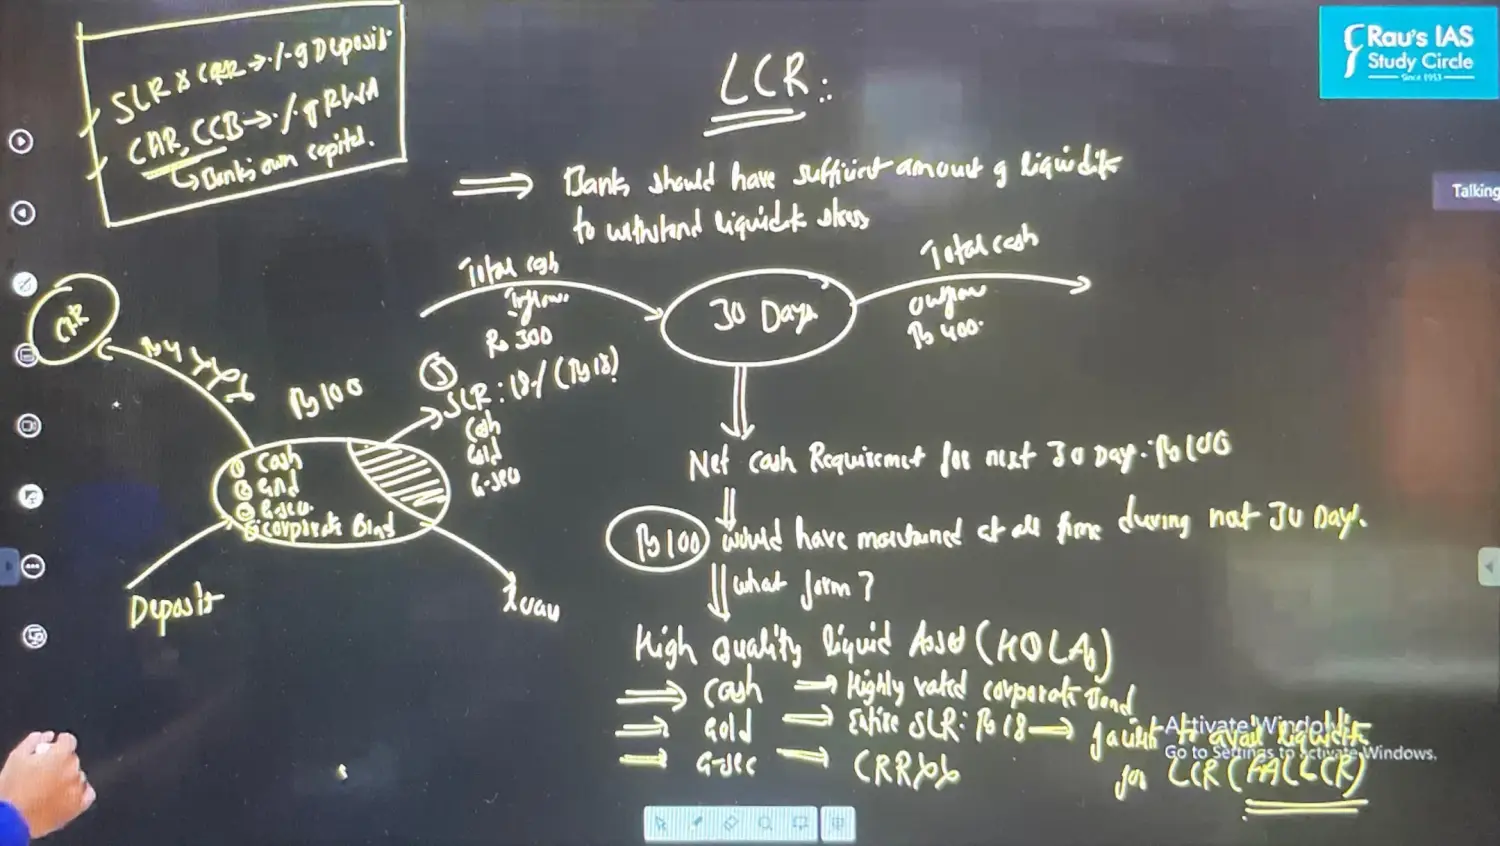 SLR & CRR → % g Deposit
CAR, CCB → % g RWA
↳ Banks own capital.
LCR:
Rau's IAS
Study Circle
Since 1953
Talking
⇒ Banks should have sufficient amount g liquidity
to withstand liquidity stress
Total cash
inflow
Rs 300
30 Days
Total cash
outflow
Rs 400
CRR
Rs 4
Rs 100
SLR: 18% (Rs 18)
Cash
Gold
G-sec
① Cash
② Gold
③ G-sec
Corporate Bond
Deposit
Loan
Net Cash Requirement for next 30 Day: Rs 100
Rs 100 would have maintained at all time during next 30 Days.
What form?
High Quality liquid Asset (HQLAs)
⇒ Cash → Highly rated corporate Bond
⇒ Gold → Entire SLR: Rs 18 → facility to avail liquidity
→ G-sec → CRR
for LCR (FALLCR)
Activate Windows
Go to Settings to activate Windows.